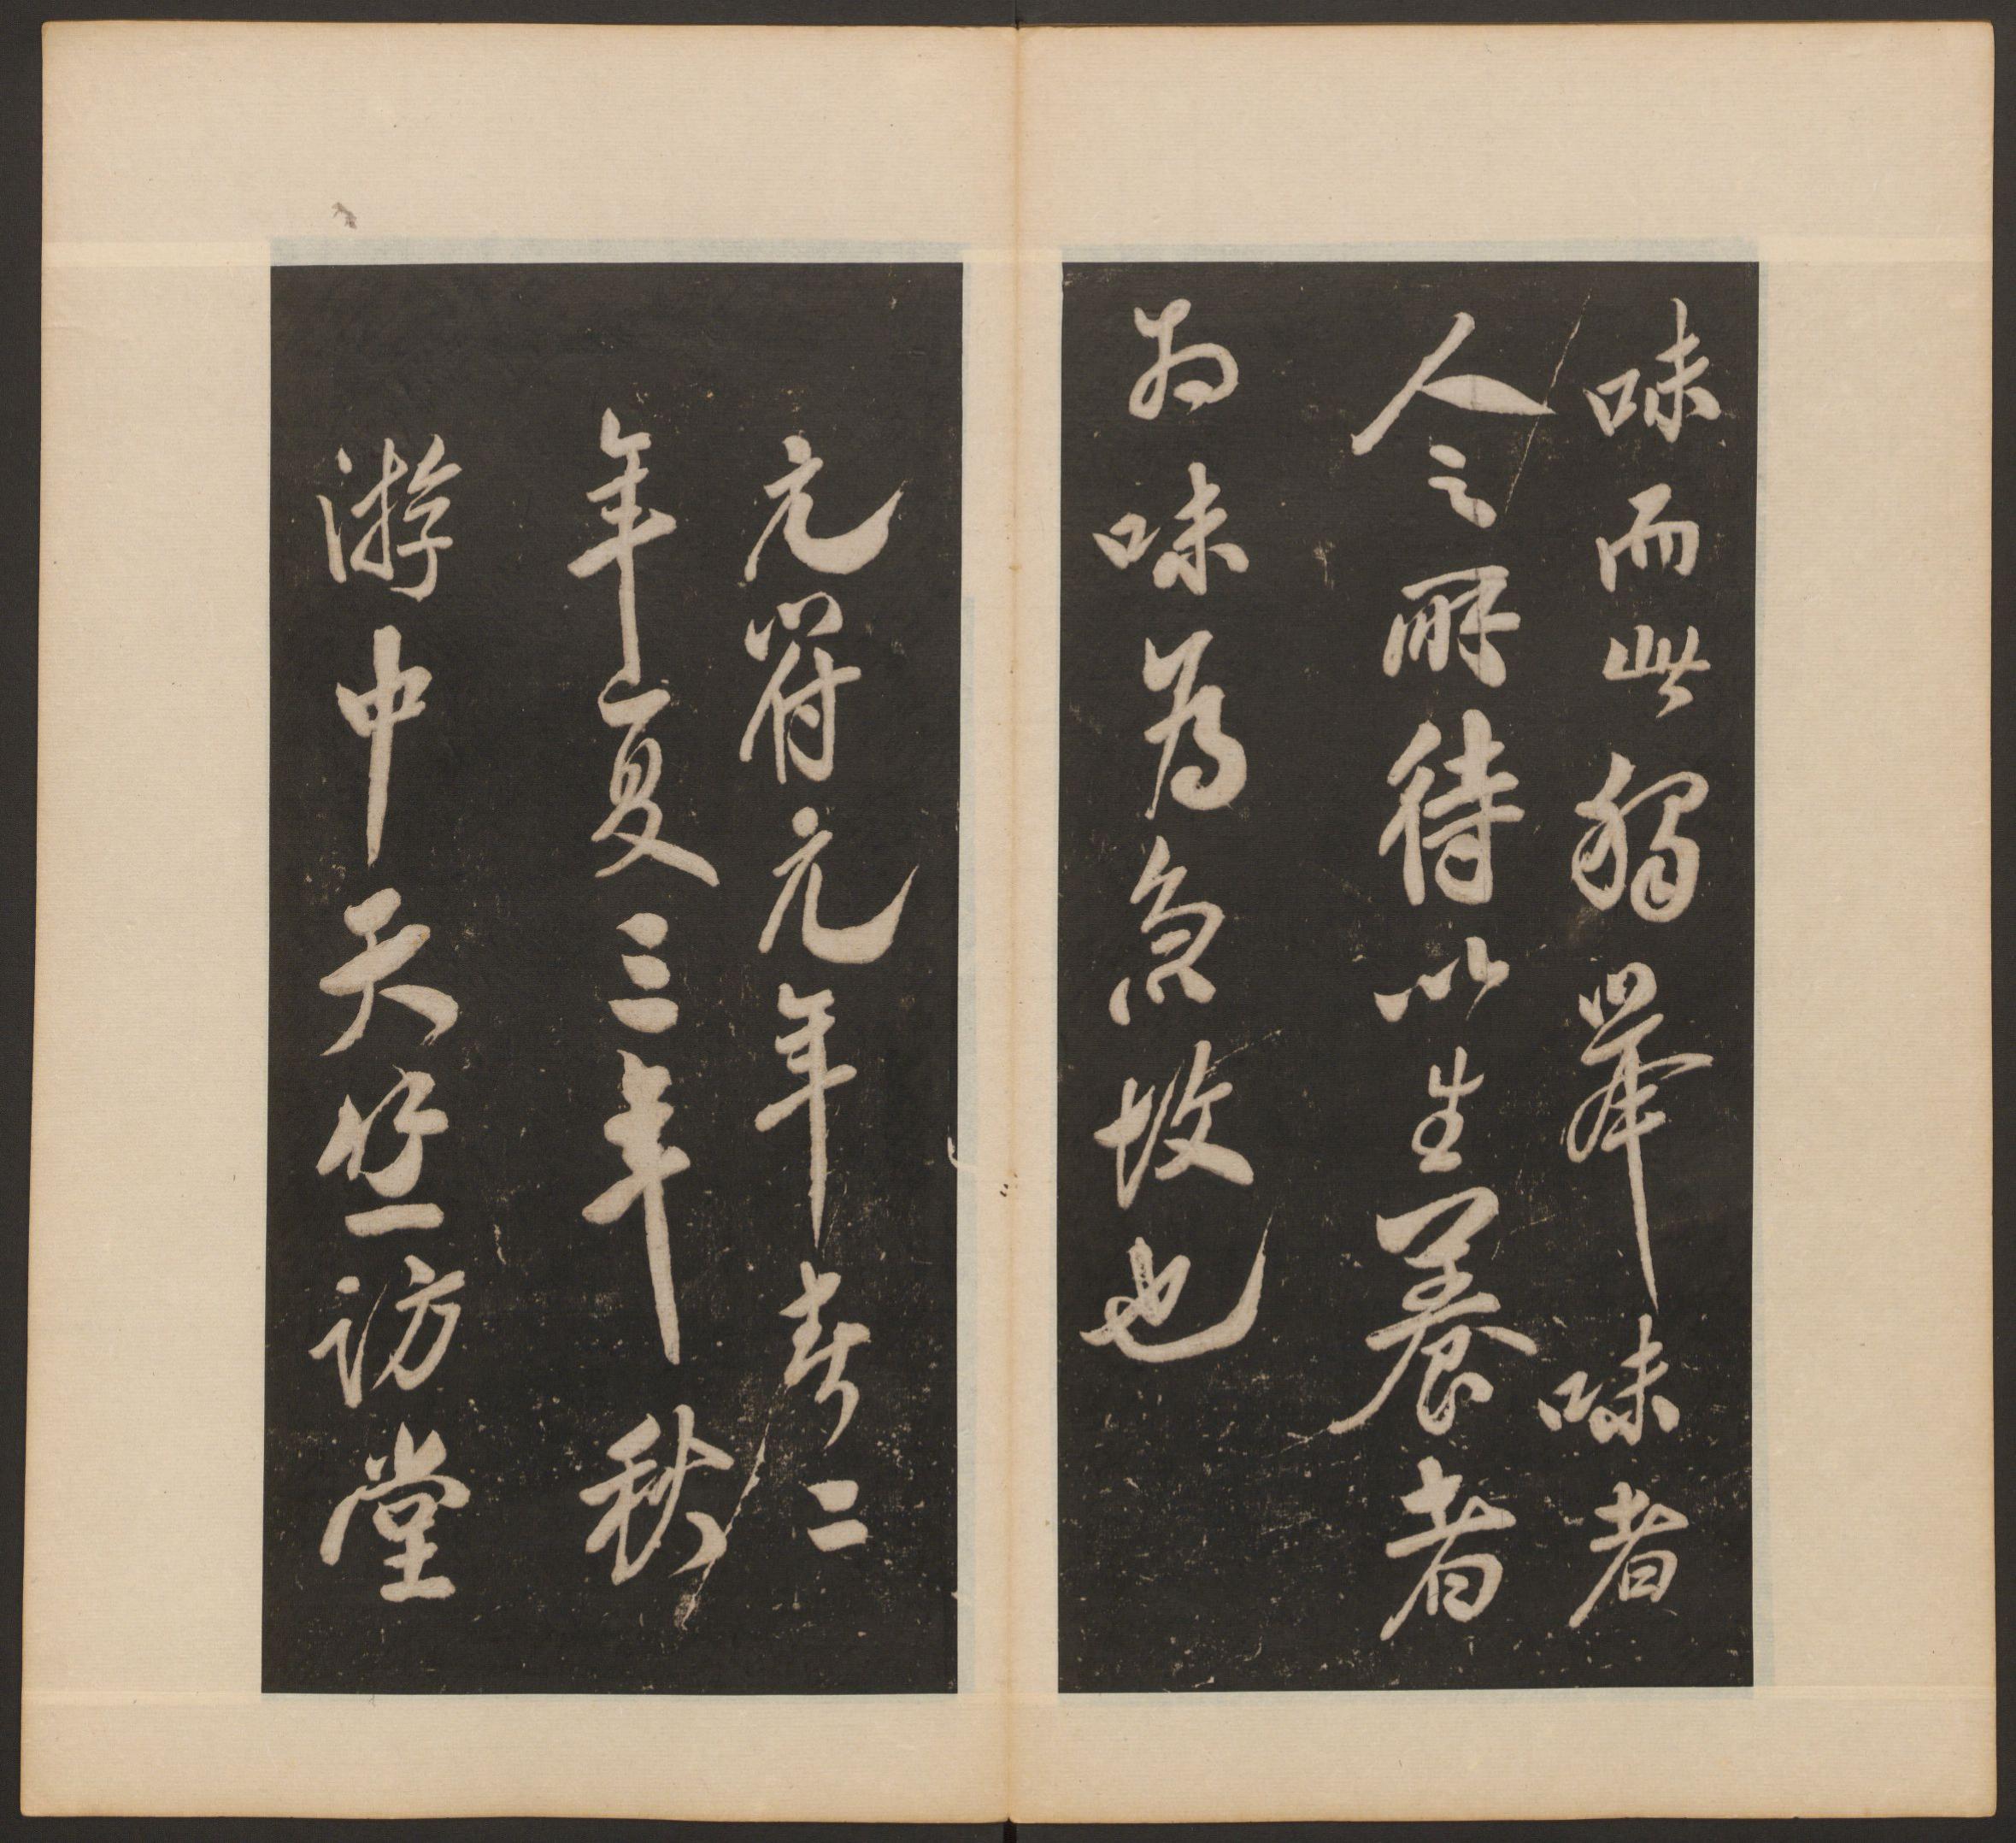 味而此獨舉味者
人之所待以生養者
為味為急故也
元符元年春二
年夏三年秋
游中天竺訪堂